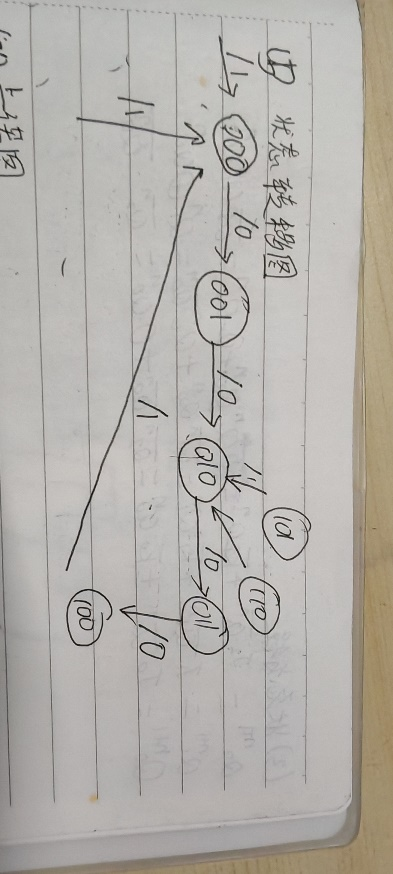 ④ 状态转换图
/1 000 /0 001 /0 010 /0 011
/1 101
110
/1 /1 /0
100